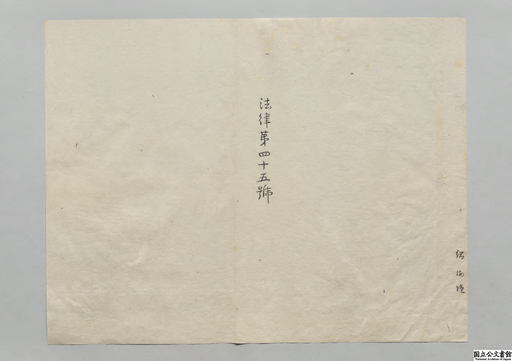 法律第四十五號
国立公文書館
National Archives of Japan